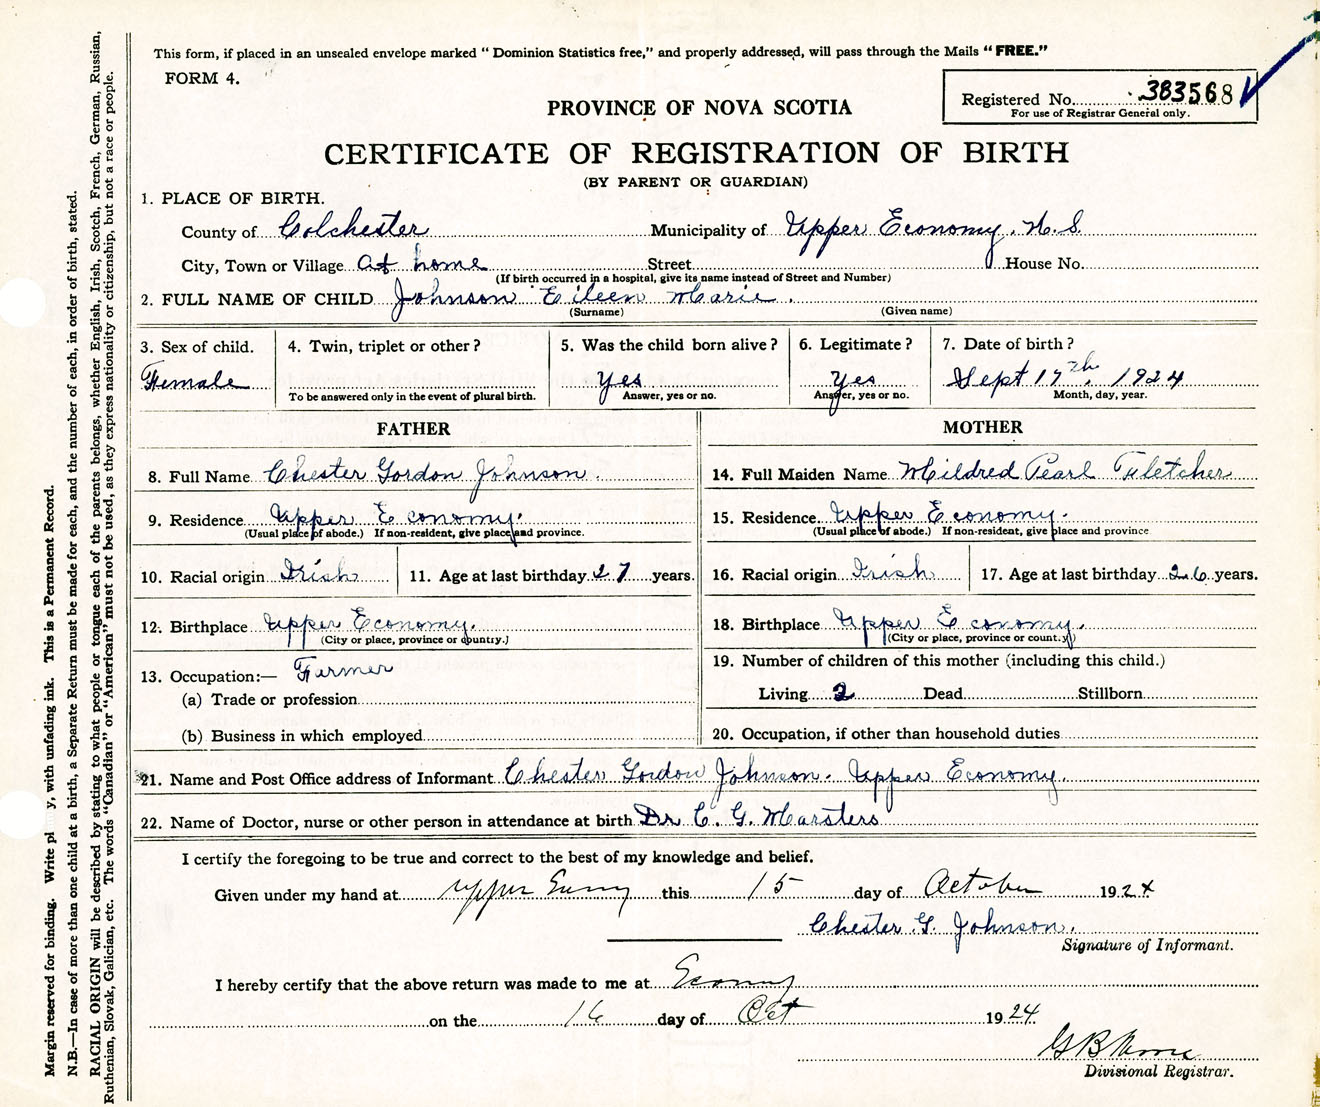 This form, if placed in an unsealed envelope marked "Dominion Statistics free," and properly addressed, will pass through the Mails "FREE."
FORM 4.
Registered No. 383568
For use of Registrar General only.
PROVINCE OF NOVA SCOTIA
CERTIFICATE OF REGISTRATION OF BIRTH
(BY PARENT OR GUARDIAN)
1. PLACE OF BIRTH.
County of Colchester Municipality of Upper Economy. N.S.
City, Town or Village At home Street House No.
(If birth occurred in a hospital, give its name instead of Street and Number)
2. FULL NAME OF CHILD Johnson Eileen Marie.
(Surname) (Given name)
3. Sex of child. 4. Twin, triplet or other? 5. Was the child born alive? 6. Legitimate? 7. Date of birth?
Female Yes Yes Sept 17th, 1924
To be answered only in the event of plural birth. Answer, yes or no. Answer, yes or no. Month, day, year.
FATHER
8. Full Name Chester Gordon Johnson.
9. Residence Upper Economy.
(Usual place of abode.) If non-resident, give place and province.
10. Racial origin Irish 11. Age at last birthday 27 years.
12. Birthplace Upper Economy.
(City or place, province or country.)
13. Occupation:— Farmer
(a) Trade or profession
(b) Business in which employed
MOTHER
14. Full Maiden Name Mildred Pearl
15. Residence Upper Economy.
(Usual place of abode.) If non-resident, give place and province.
16. Racial origin Irish 17. Age at last birthday 26 years.
18. Birthplace Upper Economy.
(City or place, province or country.)
19. Number of children of this mother (including this child.)
Living 2 Dead Stillborn
20. Occupation, if other than household duties
21. Name and Post Office address of Informant Chester Gordon Johnson. Upper Economy.
22. Name of Doctor, nurse or other person in attendance at birth Dr C. G. Marsters
I certify the foregoing to be true and correct to the best of my knowledge and belief.
Given under my hand at Upper this 15 day of October 1924
Chester G. Johnson.
Signature of Informant.
I hereby certify that the above return was made to me at
on the 16 day of Oct 1924
G B
Divisional Registrar.
Margin reserved for binding. Write pl y, with unfading ink. This is a Permanent Record.
N.B.—In case of more than one child at a birth, a Separate Return must be made for each, and the number of each, in order of birth, stated.
RACIAL ORIGIN will be described by stating to what people or tongue each of the parents belongs, whether English, Irish, Scotch, French, German, Russian,
Ruthenian, Slovak, Galician, etc. The words "Canadian" or "American" must not be used, as they express nationality or citizenship, but not a race or people.